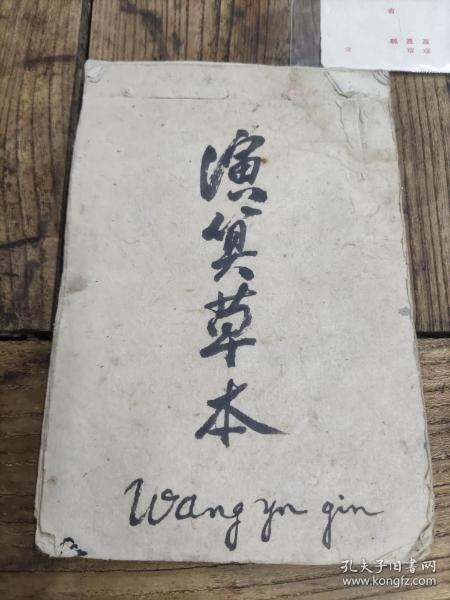 演算草本
Wang yn gin
孔夫子旧书网
www.kongfz.com